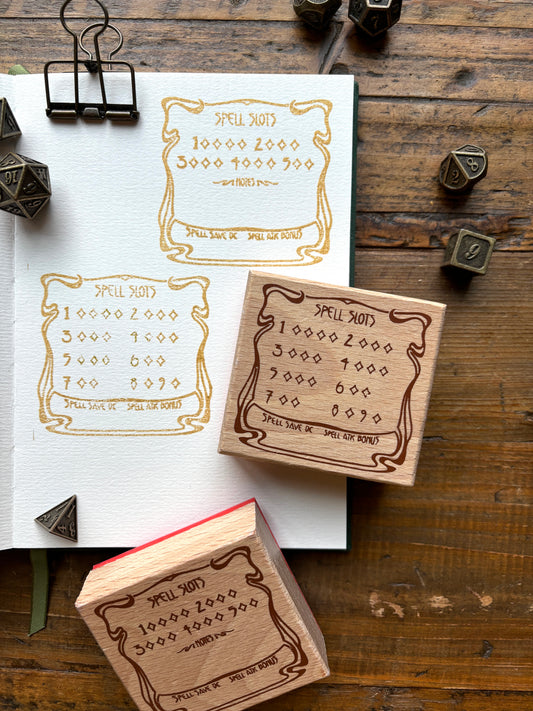 SPELL SLOTS
1◇◇◇◇ 2◇◇◇
3◇◇◇ 4◇◇◇ 5◇◇
NOTES
SPELL SAVE DC SPELL ATK BONUS
SPELL SLOTS
1◇◇◇◇ 2◇◇◇
3◇◇◇ 4◇◇◇
5◇◇◇ 6◇◇
7◇◇ 8◇9◇
SPELL SAVE DC SPELL ATK BONUS
SPELL SLOTS
1◇◇◇◇ 2◇◇◇
3◇◇◇ 4◇◇◇
5◇◇◇ 6◇◇
7◇◇ 8◇9◇
SPELL SAVE DC SPELL ATK BONUS
SPELL SLOTS
1◇◇◇◇ 2◇◇◇
3◇◇◇ 4◇◇◇ 5◇◇
NOTES
SPELL SAVE DC SPELL ATK BONUS
16
2
8
9